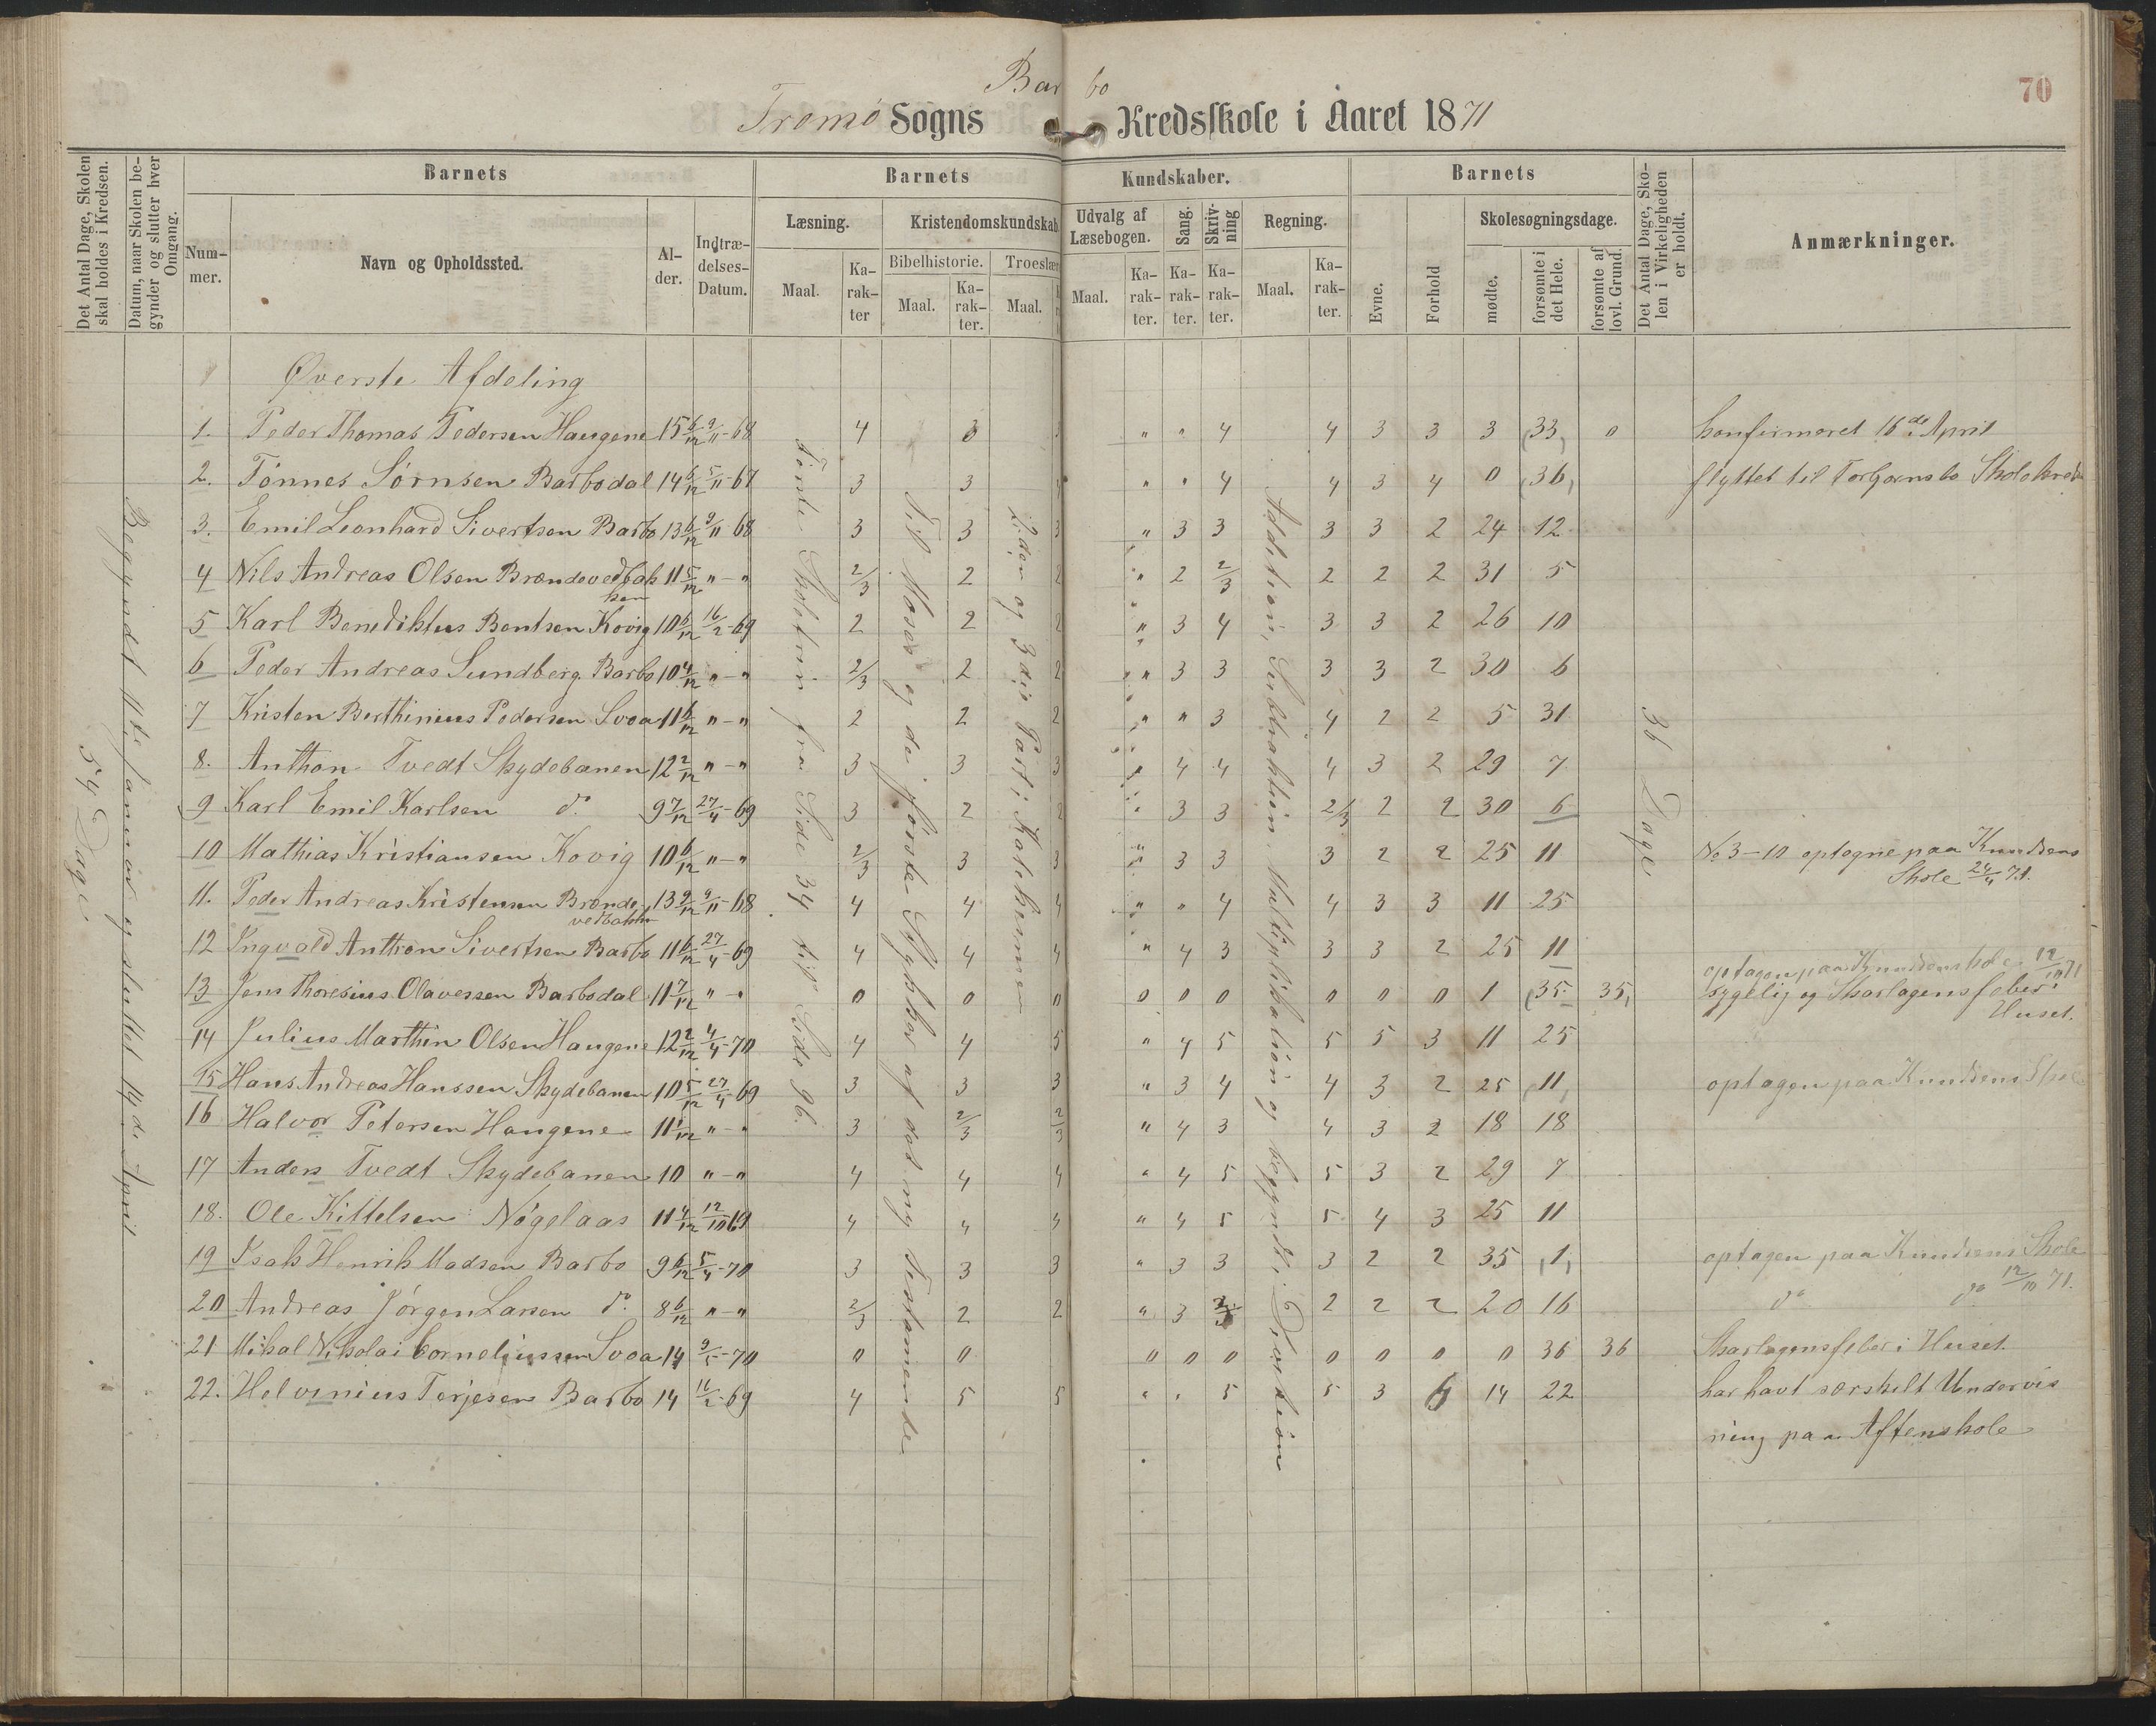 Barbo
70
Tromø Sogns Kredsskole i Aaret 1871
Det Antal Dage, Skolen skal holdes i Kredsen.
Datum, naar Skolen begynder og slutter hver Omgang.
Barnets
Barnets Kundskaber.
Barnets
Det Antal Dage, Skolen i Virkeligheden er holdt.
Anmærkninger.
Nummer.
Navn og Opholdssted.
Alder.
Indtrædelses-Datum.
Læsning.
Kristendomskundskab
Udvalg af Læsebogen.
Sang.
Skrivning
Regning.
Evne.
Forhold
Skolesøgningsdage.
Bibelhistorie.
Troeslær
Maal.
Karakter
Maal.
Karakter.
Maal.
Maal.
Karakter.
Karakter.
Karakter.
Maal.
Karakter.
mødte.
forsømte i det Hele.
forsømte af lovl. Grund.
54 Dage
Begyndt 11te Januar og sluttet 14de April
Øverste Afdeling
1. Peder Thomas Pedersen Haugene 15 6/12 9/11-68 4 3 " " 4 4 3 3 3 33 0 konfirmeret 16de April
2. Tönnes Sörnsen Barbodal 14 6/12 5/11-67 3 3 4 " " 4 4 3 4 0 36 flyttet til Skolekreds
3. Emil Leonhard Sivertsen Barbo 13 6/12 9/11-68 3 3 3 " 3 3 3 3 2 24 12
4 Nils Andreas Olsen Brændevedbakken 11 5/12 "-" 2/3 2 2 " 2 2/3 2 2 2 31 5
5 Karl Benediktus Bentsen Kovig 10 6/12 16/2-69 2 2 2 " 3 4 3 3 2 26 10
6 Peder Andreas Sundberg Barbo 10 4/12 "-" 2/3 2 2 " 3 3 3 3 2 30 6
7 Kristen Berthinius Pedersen Svoa 11 6/12 "-" 2 2 2 " " 3 4 2 2 5 31
8. Anthon Tvedt Skydebanen 12 2/12 "-" 3 3 3 " 4 4 4 3 2 29 7
9 Karl Emil Karlsen do 9 7/12 27/4-69 3 2 2 " 3 3 2/3 2 2 30 6
10 Mathias Kristiansen Kovig 10 6/12 "-" 2/3 3 3 " 3 3 3 2 2 25 11 No 3-10 optagne paa Knudsens Skole 24/4 71.
11. Peder Andreas Kristensen Brændevedbakken 13 9/12 9/11-68 4 4 4 " " 4 4 3 3 11 25
12 Ingvald Anthon Sivertsen Barbo 11 6/12 27/4-69 4 4 4 " 4 3 3 3 2 25 11 optagen paa Knudsens Skole 12/10 71
13 Jens Thoresius Olavessen Barbodal 11 7/12 "-" 0 0 0 0 0 0 0 0 0 1 35 35 sygelig og Skarlagensfeber i Huset.
14 Julius Marthin Olsen Haugene 12 2/12 4/4-70 4 4 5 " 4 5 5 5 3 11 25
15 Hans Andreas Hanssen Skydebanen 10 5/12 27/4-69 3 3 3 " 3 4 4 3 2 25 11 optagen paa Knudsens Skole
16 Halvor Petersen Haugene 11 1/12 "-" 3 2/3 2/3 " 4 3 4 3 2 18 18
17 Anders Tvedt Skydebanen 10 "-" 4 4 4 " 4 5 5 3 2 29 7
18. Ole Kittelsen Nögelaas 11 4/12 12/10 69 4 4 4 " 4 5 5 4 3 25 11
19 Isak Henrik Madsen Barbo 9 6/12 5/4-70 3 3 3 " 3 3 3 2 2 35 1 optagen paa Knudsens Skole
20 Andreas Jörgen Larsen do 8 6/12 "-" 2/3 2 2 " 3 2/3 2 2 2 20 16 do do 12/10 71.
21 Mikal Nikolai Corneliussen Svoa 14 9/5-70 0 0 0 0 0 0 0 0 0 36 36 Skarlagensfeber i Huset.
22. Helvinius Terjesen Barbo 14 16/2-69 4 5 5 " " 5 5 3 14 22 har havt særskilt Undervisning paa Aftenskole
Tönte Skoletrin fra Side 34 til Side 96.
Til Moses og de förste Stykker af det ny Testamente
2den og 3die Part i Katekismen
Addition, Subtraktion, Multiplikation og begyndt i Division
36 Dage